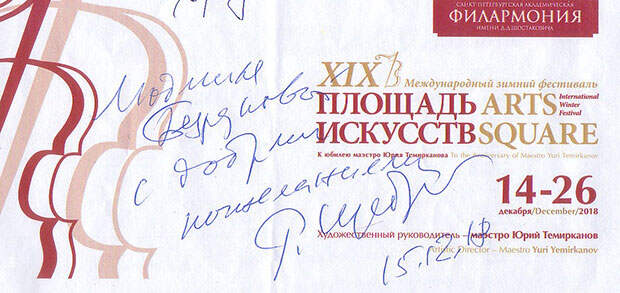 САНКТ-ПЕТЕРБУРГСКАЯ АКАДЕМИЧЕСКАЯ
ФИЛАРМОНИЯ
ИМЕНИ Д.Д.ШОСТАКОВИЧА
XIX
Международный зимний фестиваль
ПЛОЩАДЬ ARTS
ИСКУССТВ SQUARE
International
Winter
Festival
К юбилею маэстро Юрия Темирканова To the Anniversary of Maestro Yuri Temirkanov
14-26
декабря/December/2018
Художественный руководитель – маэстро Юрий Темирканов
Artistic Director – Maestro Yuri Yemirkanov
Людмиле
с добрыми
пожеланиями
15.12.18